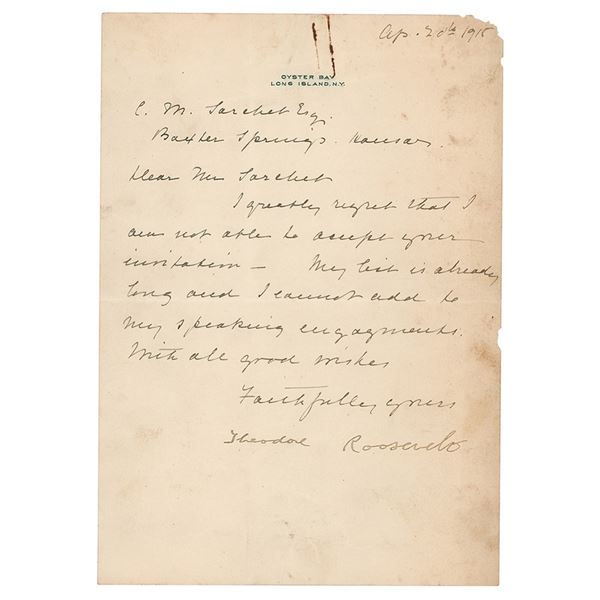 Ap. 20th 1915
OYSTER BAY
LONG ISLAND, N.Y.
C. M. Sarchet Esq.
Baxter Springs. Kansas.
Dear Mr Sarchet
I greatly regret that I
am not able to accept your
invitation — My list is already
long and I cannot add to
my speaking engagements.
With all good wishes
Faithfully yours
Theodore Roosevelt